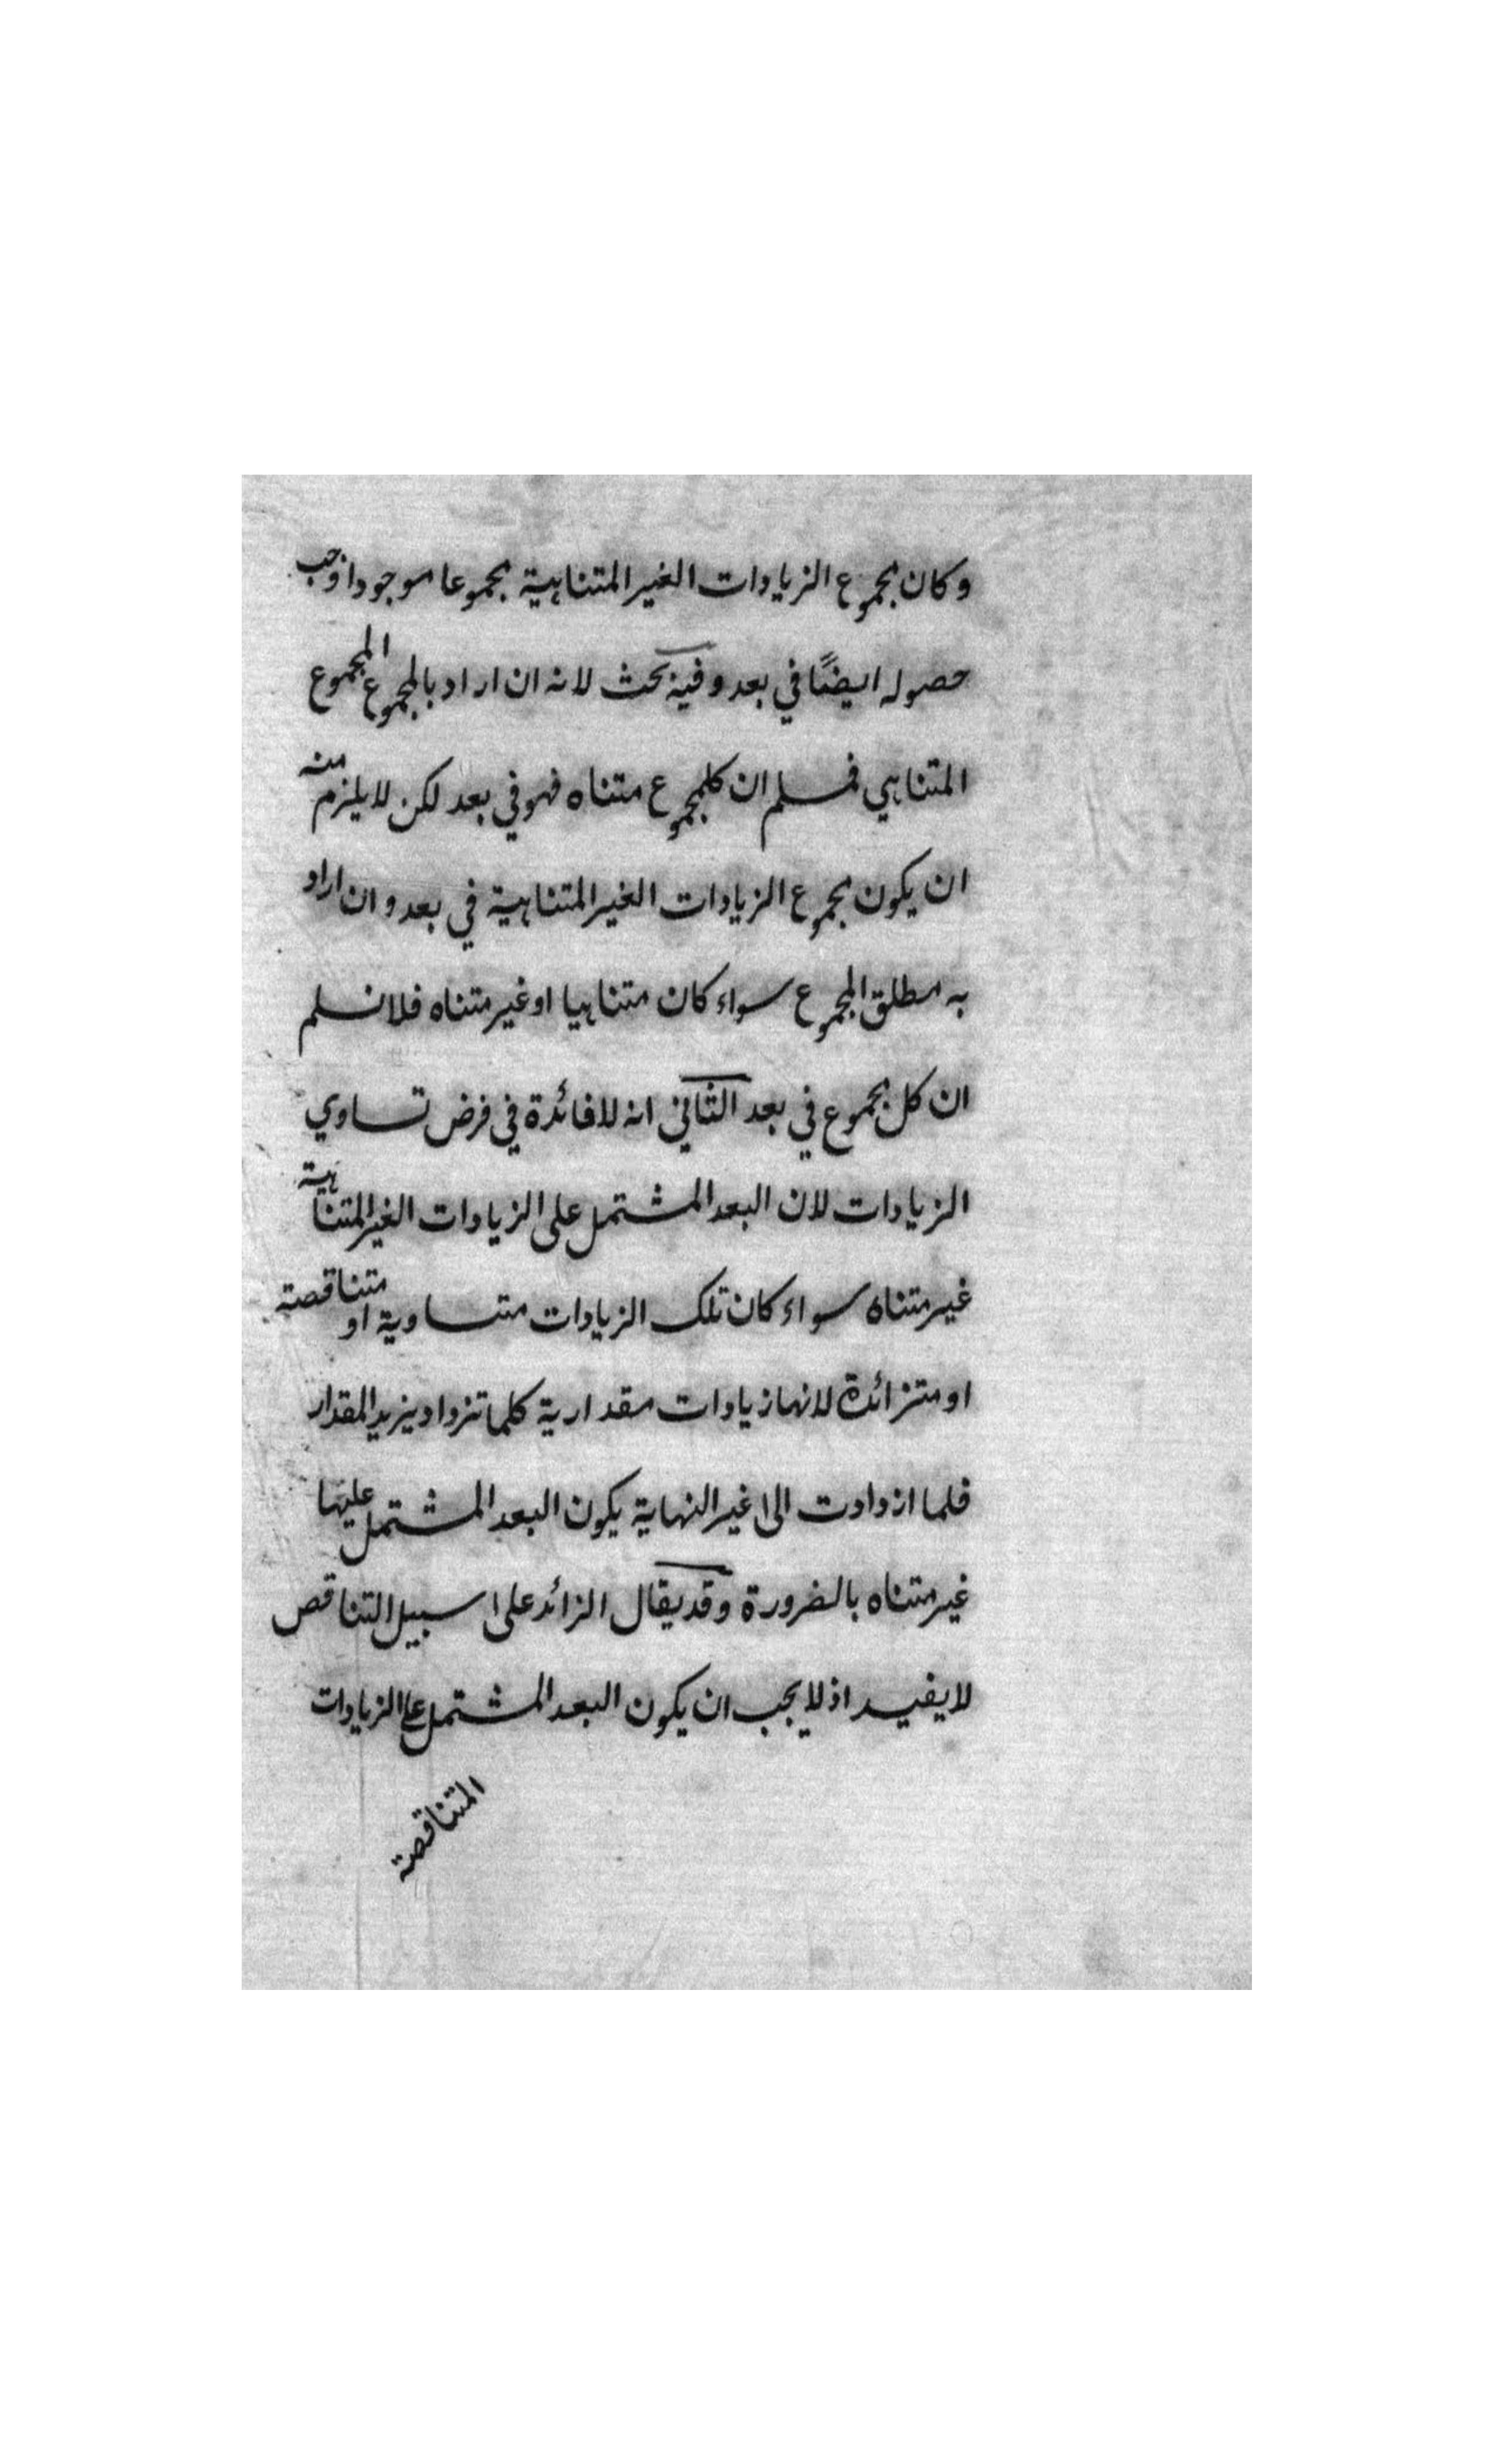 وكان مجموع الزيادات الغير المتناهية مجموعا موجودا وجب
حصوله ايضًا في بعد وفيه بحث لانه ان اراد بالمجموع المجموع
المتناهي فمسلم ان كل مجموع متناه فهو في بعد لكن لا يلزم منه
ان يكون مجموع الزيادات الغير المتناهية في بعد وان اراد
به مطلق المجموع سواء كان متناهيا او غير متناه فلا نسلم
ان كل مجموع في بعد الثاني انه لا فائدة في فرض تساوي
الزيادات لان البعد المشتمل على الزيادات الغير المتناهية
غير متناه سواء كان تلك الزيادات متساوية او متناقصة
او متزائدة لانها زيادات مقدارية كلما تزداد يزيد المقدار
فلما ازدادت الى غير النهاية يكون البعد المشتمل عليها
غير متناه بالضرورة وقد يقال الزائد على سبيل التناقص
لا يفيد اذ لا يجب ان يكون البعد المشتمل على الزيادات
المتناقصة